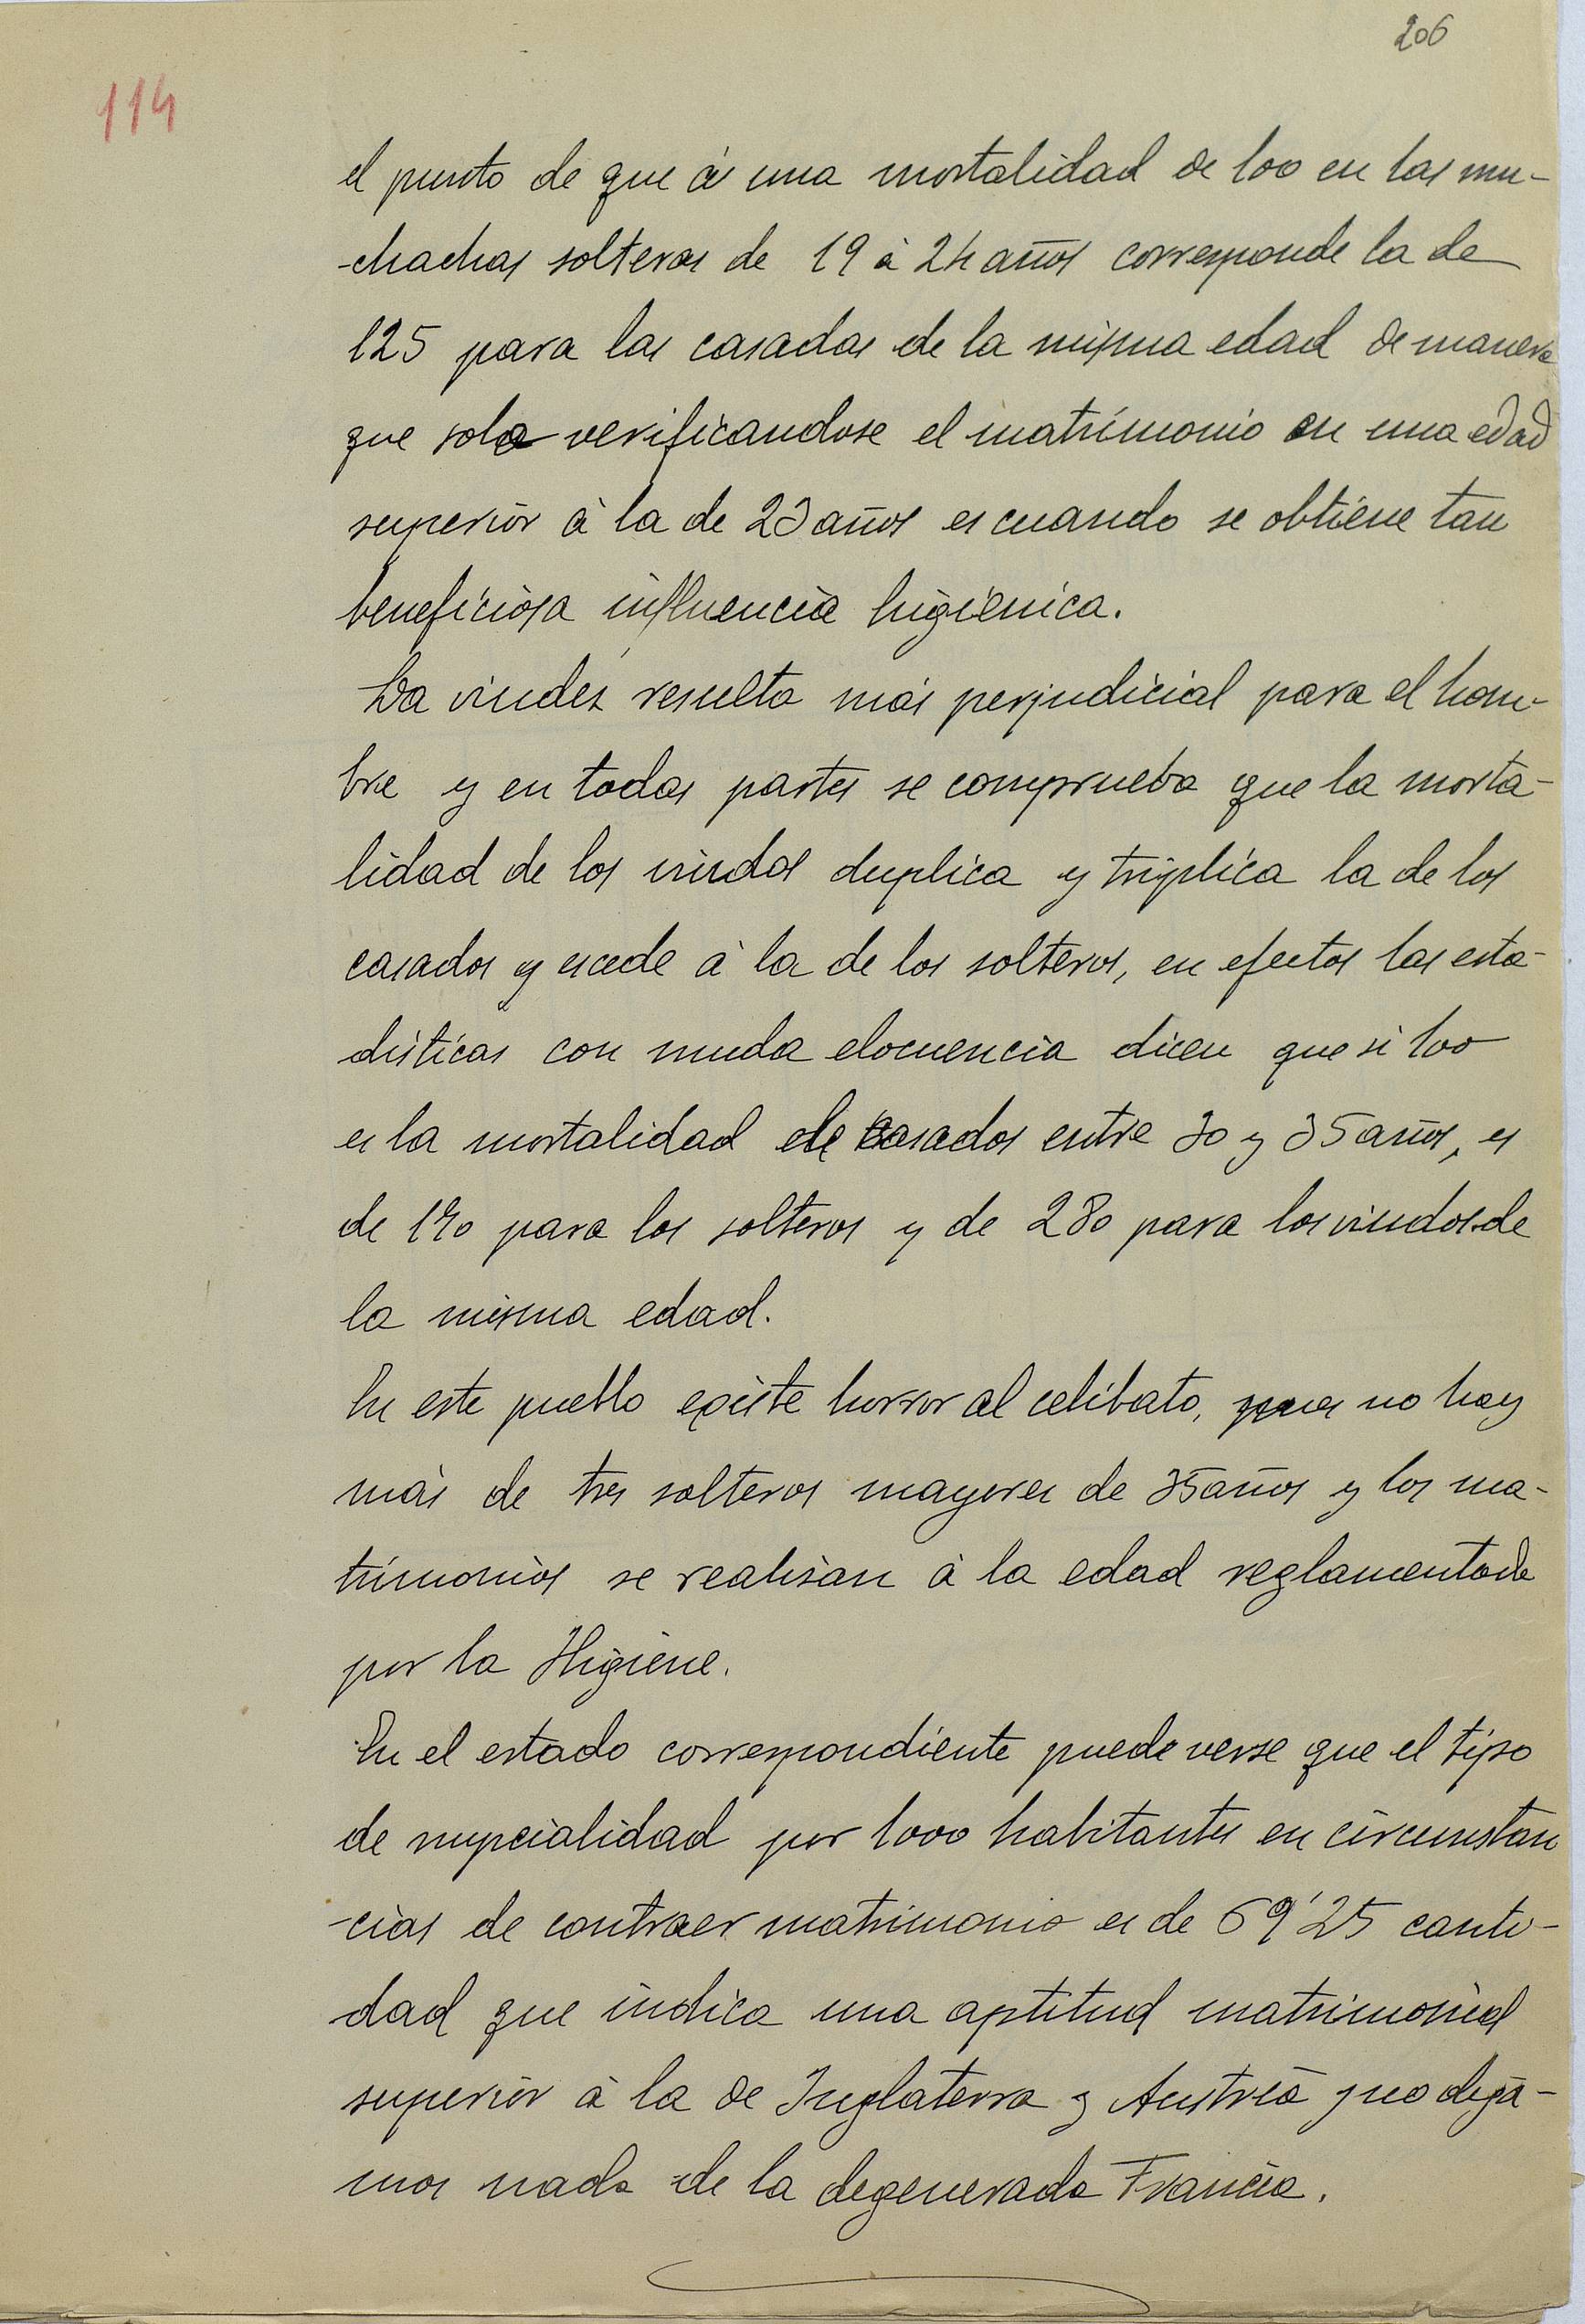 206
114
el punto de que á una mortalidad de 100 en las mu-
-chachas solteras de 19 à 24 años corresponde la de
125 para las casadas de la misma edad de manera
que solo verificandose el matrimonio en una edad
superior à la de 23 años es cuando se obtiene tan
beneficiosa influencia higiénica.
La viudez resulta más perjudicial para el hom-
bre y en todas partes se comprueba que la morta-
lidad de los viudos duplica y triplica la de los
casados y escede à la de los solteros, en efectos las esta-
disticas con muda elocuencia dicen que si 100
es la mortalidad de casados entre 30 y 35 años, es
de 170 para los solteros y de 280 para los viudos de
la misma edad.
En este pueblo existe horror al celibato, pues no hay
más de tres solteros mayores de 35 años y los ma-
trimonios se realisan à la edad reglamentada
por la Higiene.
En el estado correspondiente puede verse que el tipo
de nupcialidad por 1000 habitantes en circunstan
-cias de contraer matrimonio es de 69'25 canti-
dad que indica una aptitud matrimonial
superior à la de Inglaterra y Austria y no digá-
mos nada de la degenerada Francia.